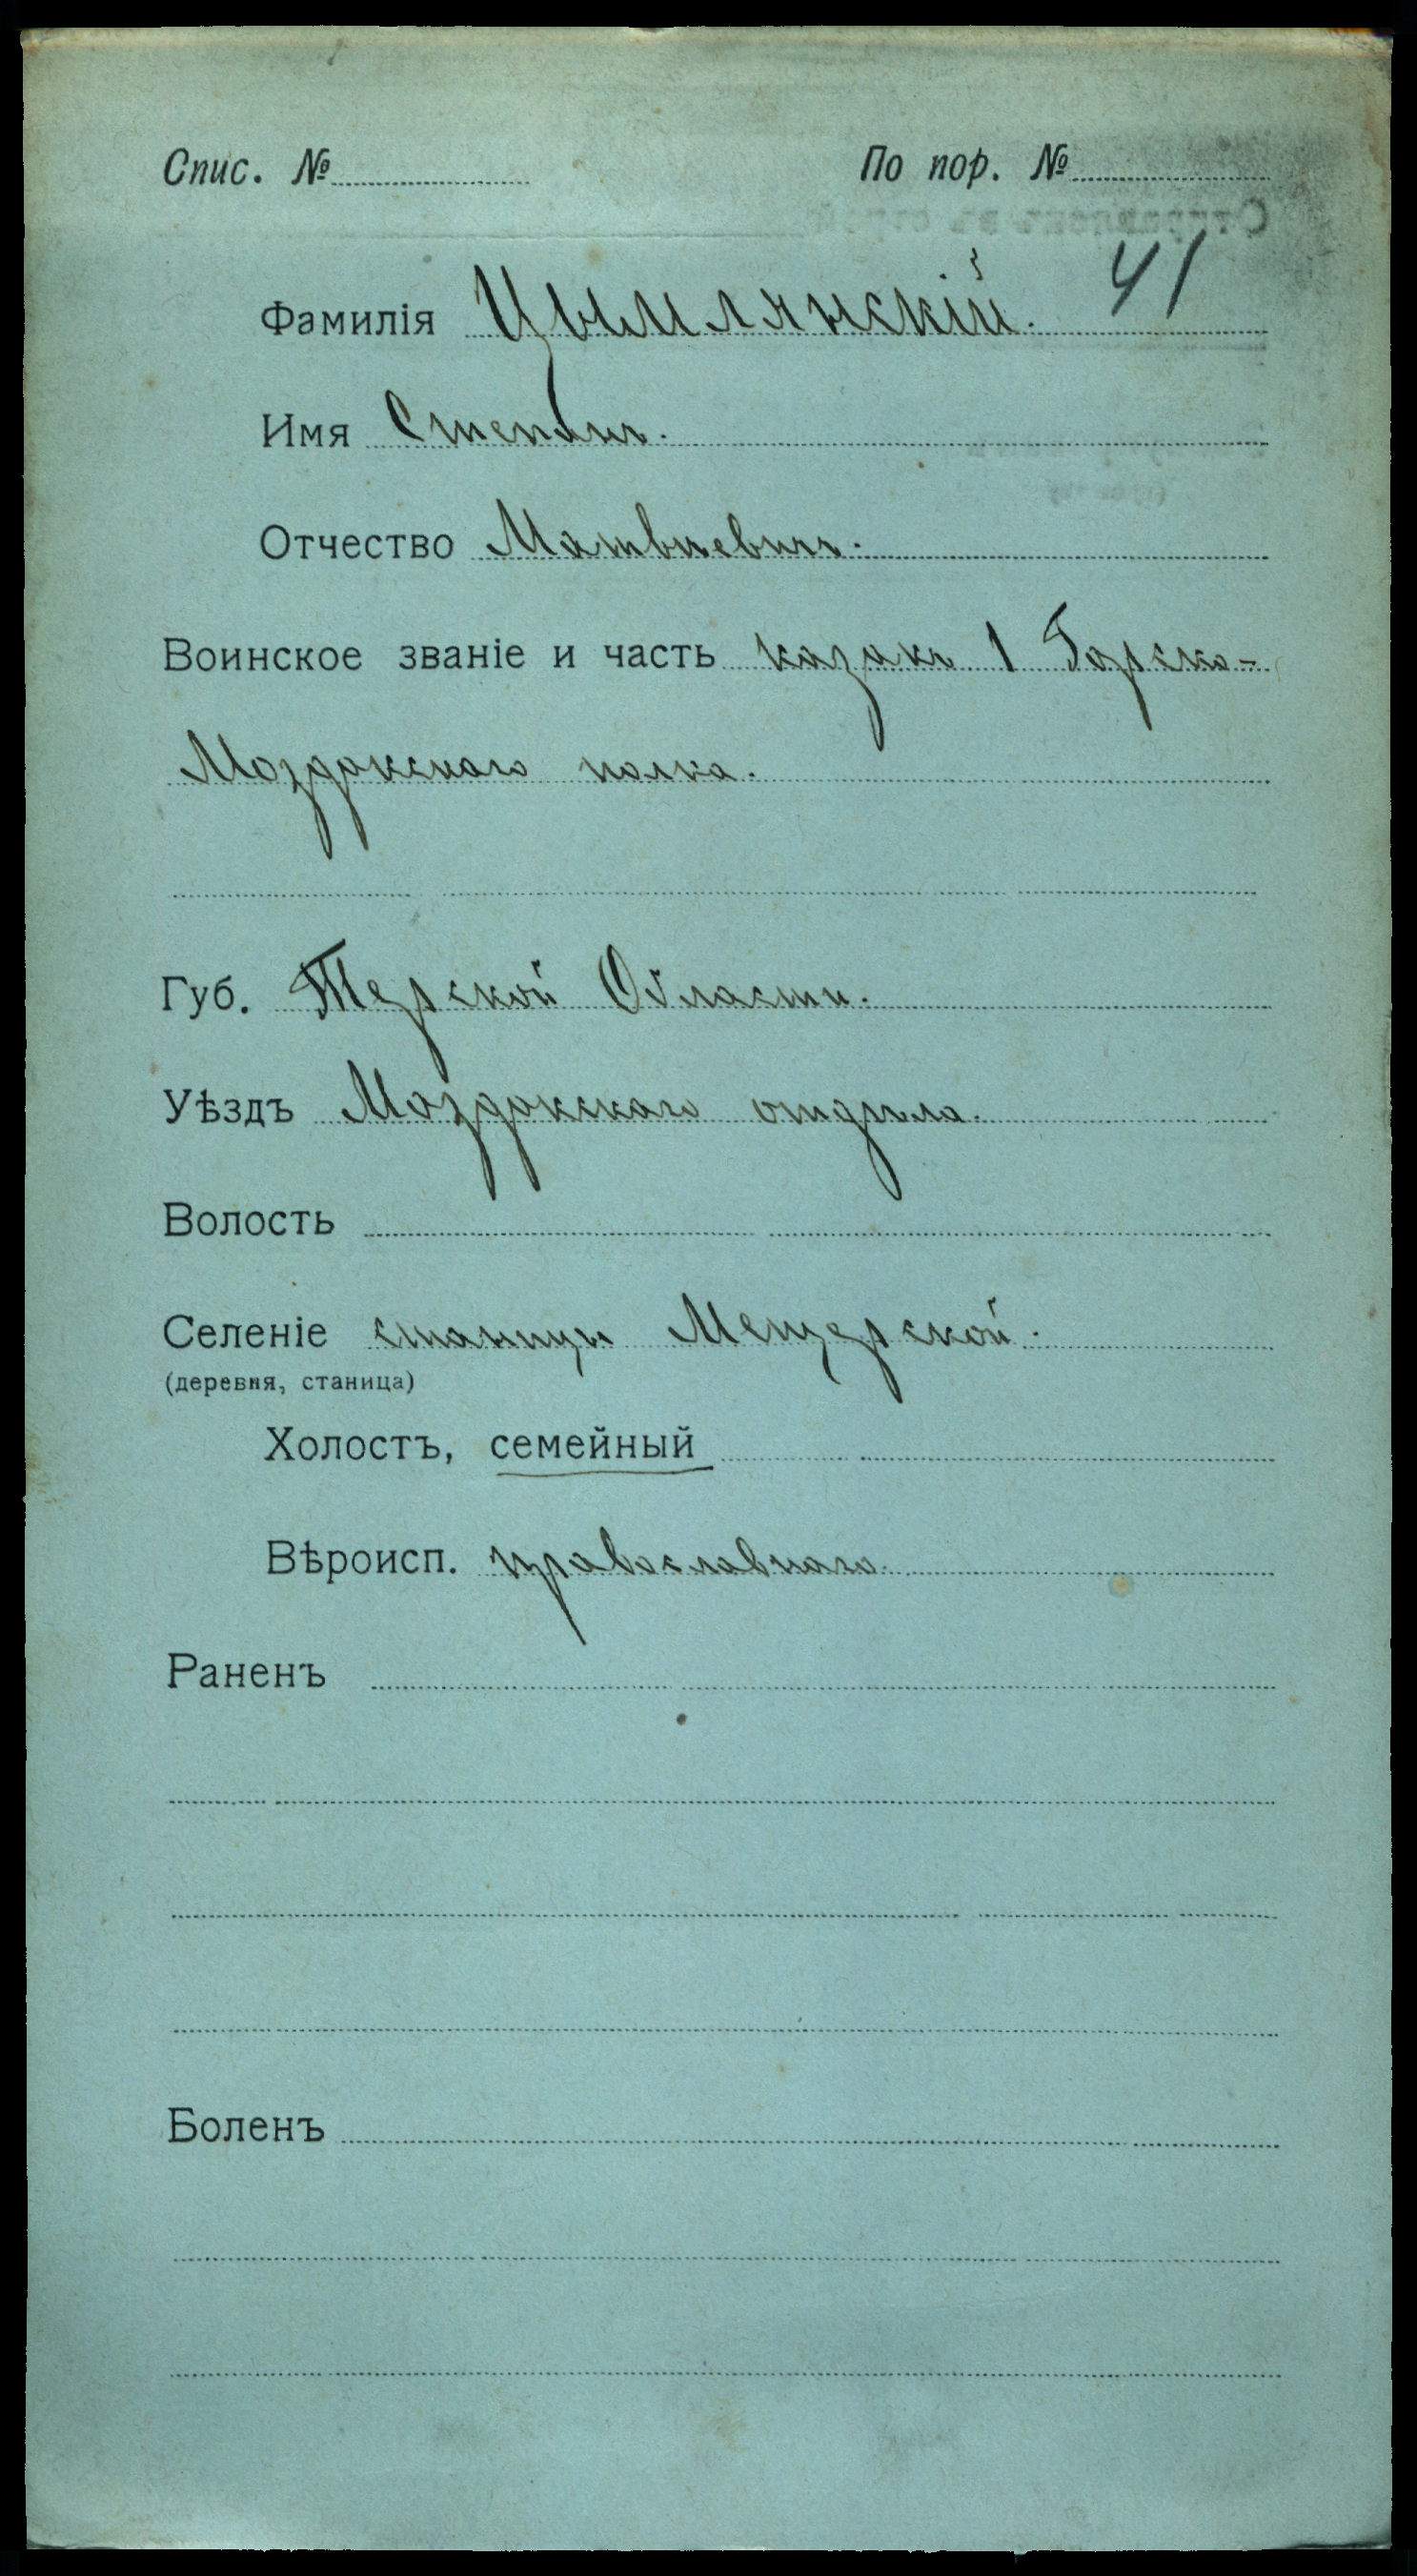 Спис. № По пор. №
Фамилія Цымлянскій. 41
Имя Степанъ.
Отчество Матвѣевичъ.
Воинское званіе и часть казакъ 1 Горско-
Моздокскаго полка.
Губ. Терской Области.
Уѣздъ Моздокскаго отдѣла.
Волость
Селеніе станицы Мещерской.
(деревня, станица)
Холостъ, семейный
Вѣроисп. православнаго.
Раненъ
Боленъ